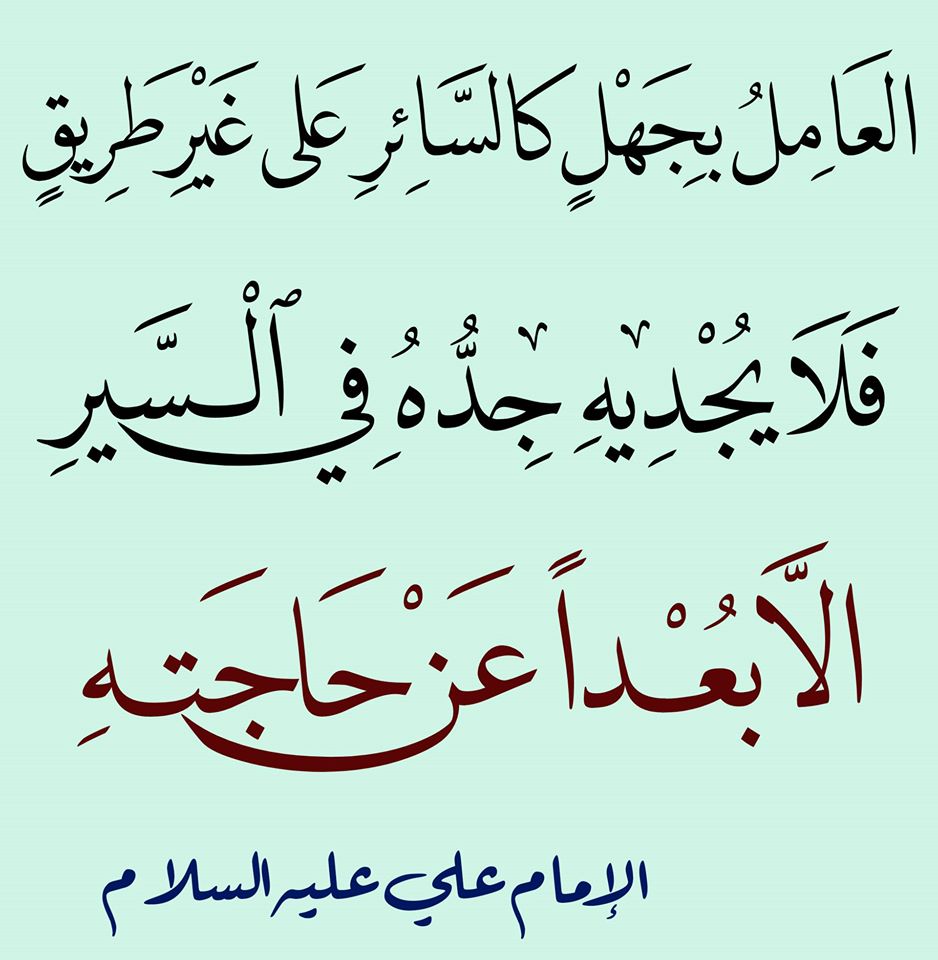 العَامِلُ بِجَهْلٍ كَالسَّائِرِ عَلى غَيْرِ طَرِيقٍ
فَلَا يُجْدِيهِ جِدُّهُ فِي ٱلْسَّيرِ
الاَّ بُعْداً عَنْ حَاجَتِهِ
الإمام علي عليه السلام